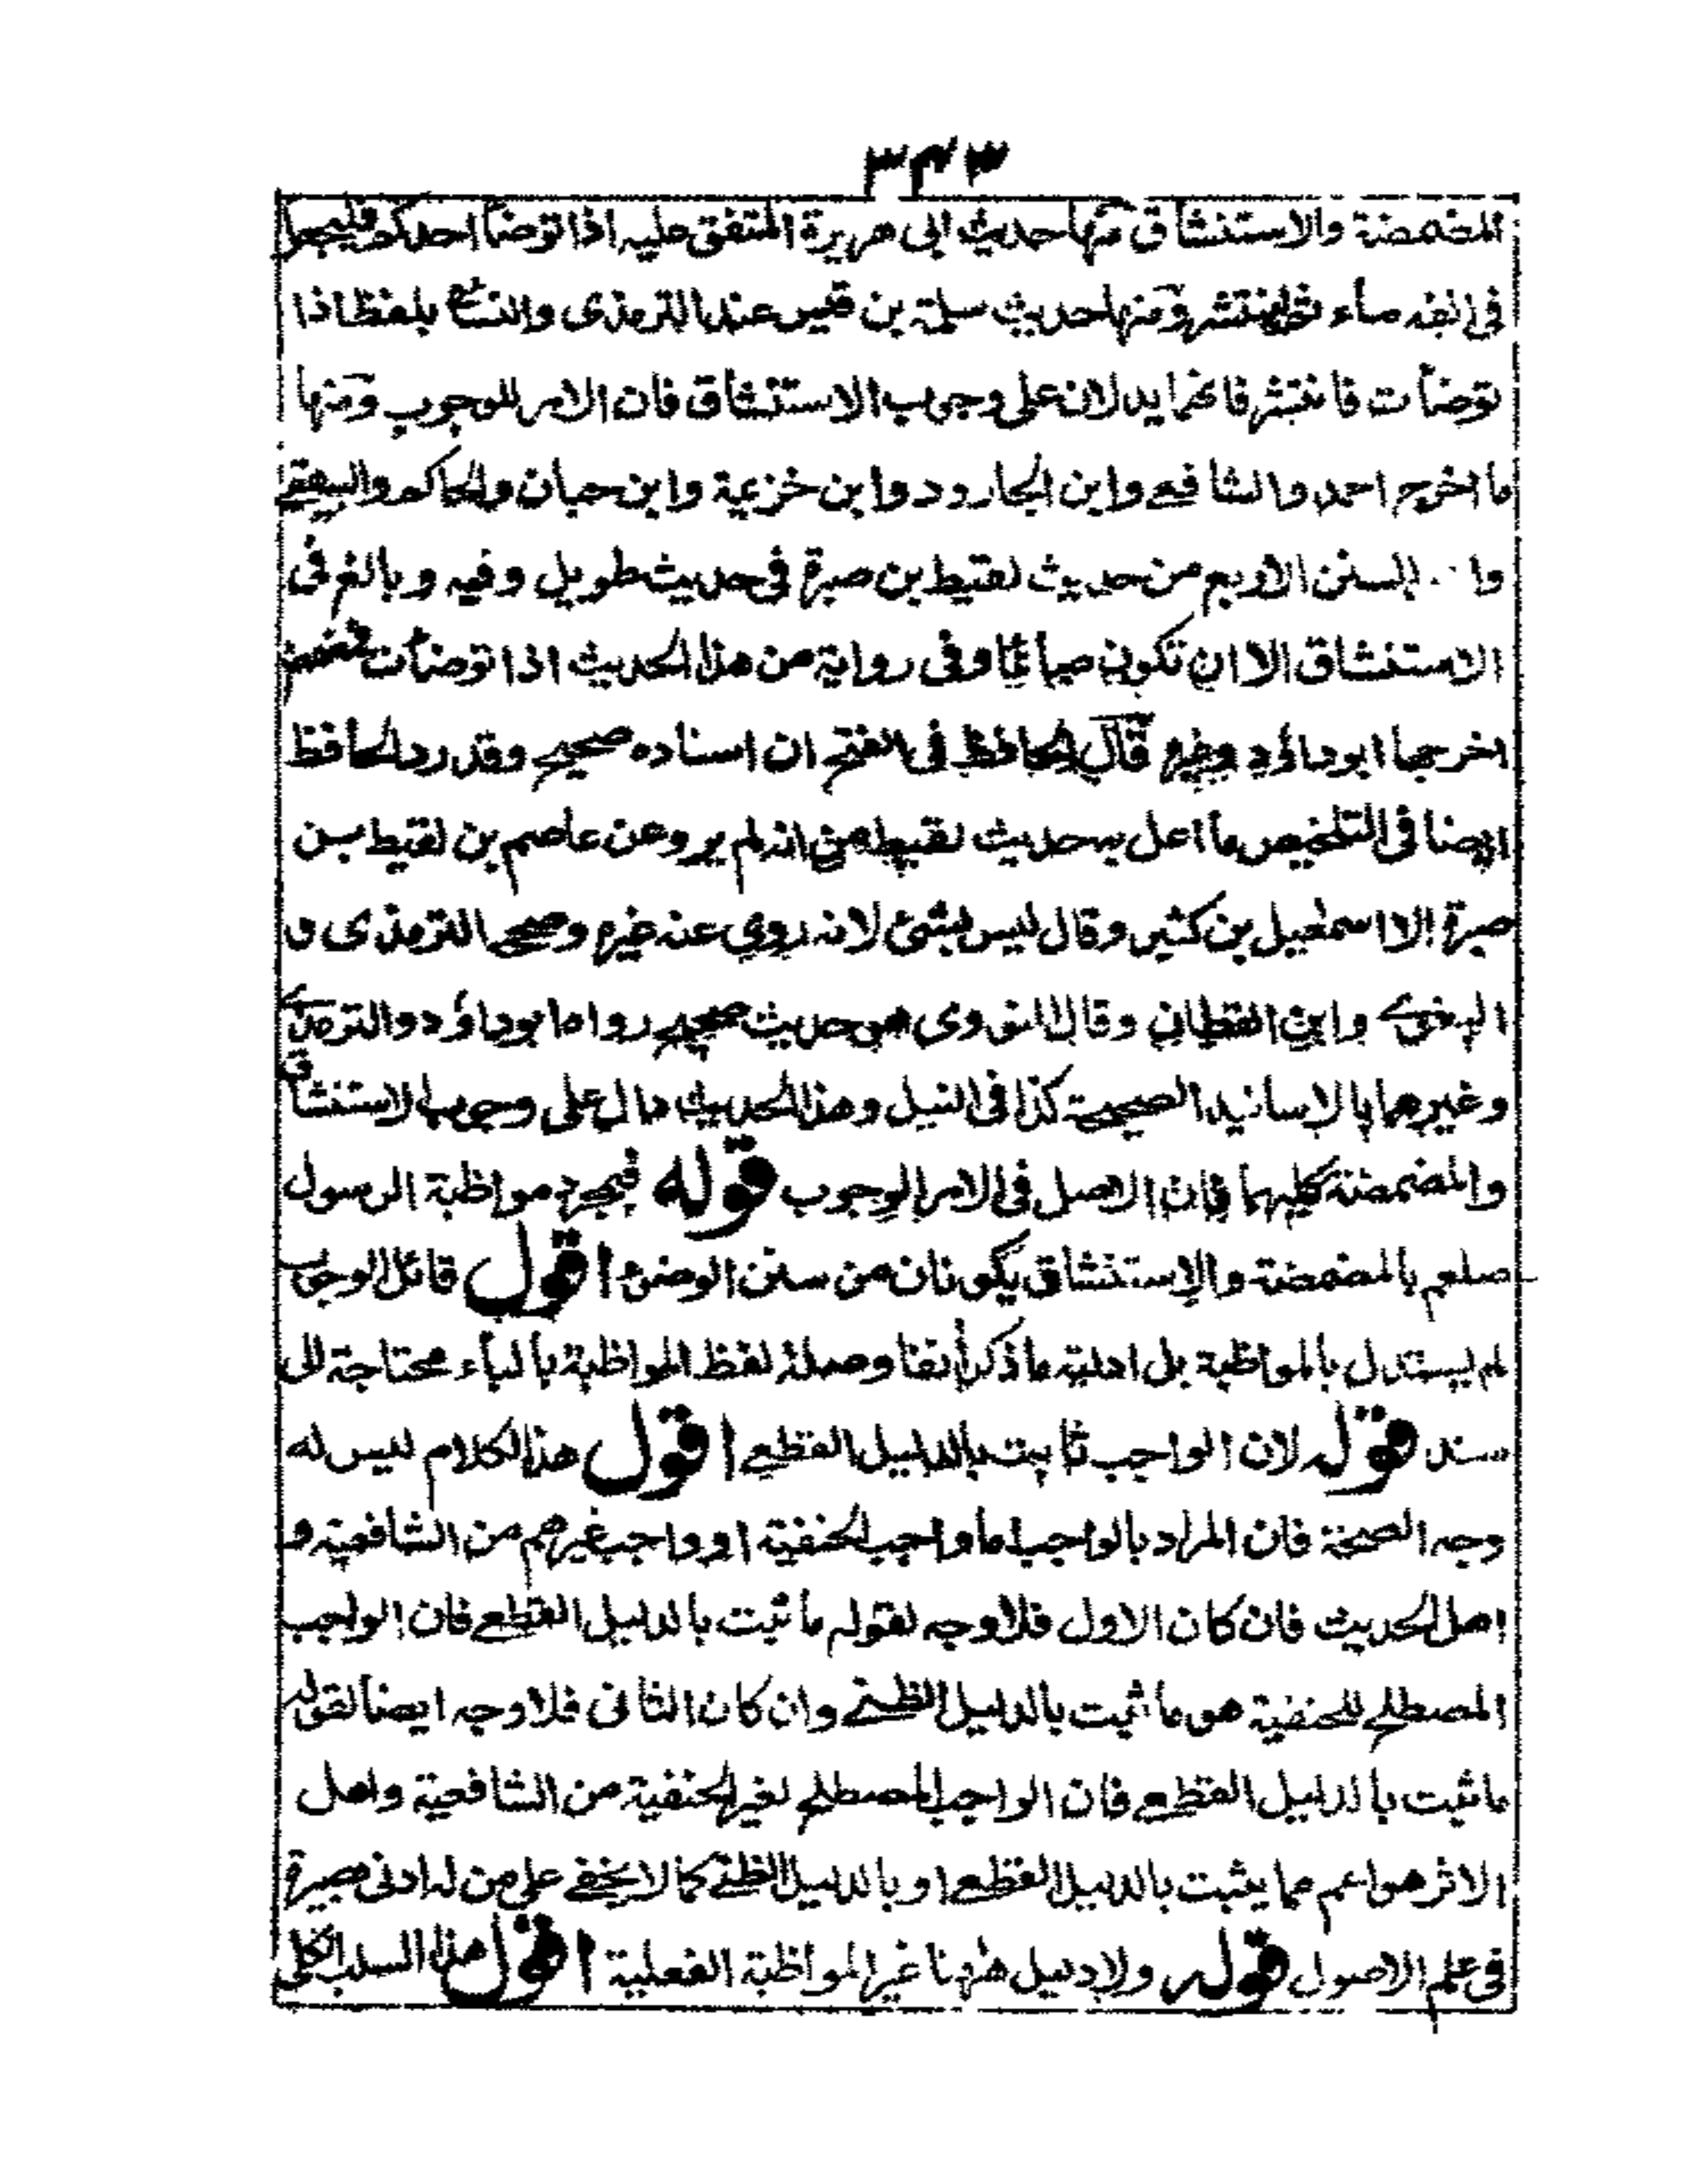 ٣٤٣
المضمضة والاستنشاق منها حديث ابى هريرة المتفق عليه اذا توضأ احدكم فليجعل
فى انفه ماء ثم لينتثر ومنها حديث سلمة بن قيس عند الترمذى والنسائى بلفظ اذا
توضأت فانتثر فانهما يدلان على وجوب الاستنشاق فان الامر للوجوب ومنها
ما اخرج احمد والشافعى وابن الجارود وابن خزيمة وابن حبان والحاكم والبيهقى
السنن الاربع من حديث لقيط بن صبرة فى حديث طويل وفيه وبالغ فى
الاستنشاق الا ان تكون صائما وفى رواية من هذا الحديث اذا توضأت فمضمض
اخرجها ابوداؤد وغيره قال الحافظ فى الفتح ان اسناده صحيح وقد رد الحافظ
ايضا فى التلخيص ما اعل به حديث لقيط من انه لم يرو عن عاصم بن لقيط بن
صبرة الا اسمعيل بن كثير وقال ليس بشئ لانه روى عنه غيره وصححه الترمذى و
البغوى وابن القطان وقال النووى هو حديث صحيح رواه ابوداؤد والترمذى
وغيرهما بالاسانيد الصحيحة كذا فى النيل وهذا الحديث دال على وجوب الاستنشاق
والمضمضة كليهما فان الاصل فى الامر الوجوب قوله فبمجرد مواظبة الرسول
صلعم بالمضمضة والاستنشاق يكونان من سنن الوضوء اقول قائل الوجوب
لم يستدل بالمواظبة بل ادلته ما ذكر أنفا وصلة لفظ المواظبة بالباء محتاجة الى
سند قوله لان الواجب ثابت بالدليل القطعى اقول هذا الكلام ليس له
وجه الصحة فان المراد بالواجب اما واجب الحنفية او واجب غيرهم من الشافعية و
اهل الحديث فان كان الاول فلا وجه لقوله ما ثبت بالدليل القطعى فان الواجب
المصطلح للحنفية هو ما ثبت بالدليل الظنى وان كان الثانى فلا وجه ايضا لقوله
ما ثبت بالدليل القطعى فان الواجب المصطلح لغير الحنفية من الشافعية واهل
الاثر هو اعم مما يثبت بالدليل القطعى او بالدليل الظنى كما لا يخفى على من له ادنى بصيرة
فى علم الاصول قوله ولا دليل ههنا غير المواظبة الفعلية اقول هذا السلب الكلى